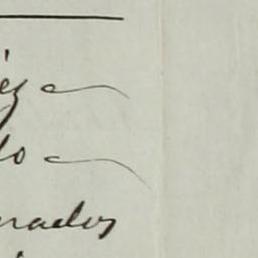 éz
do
nados